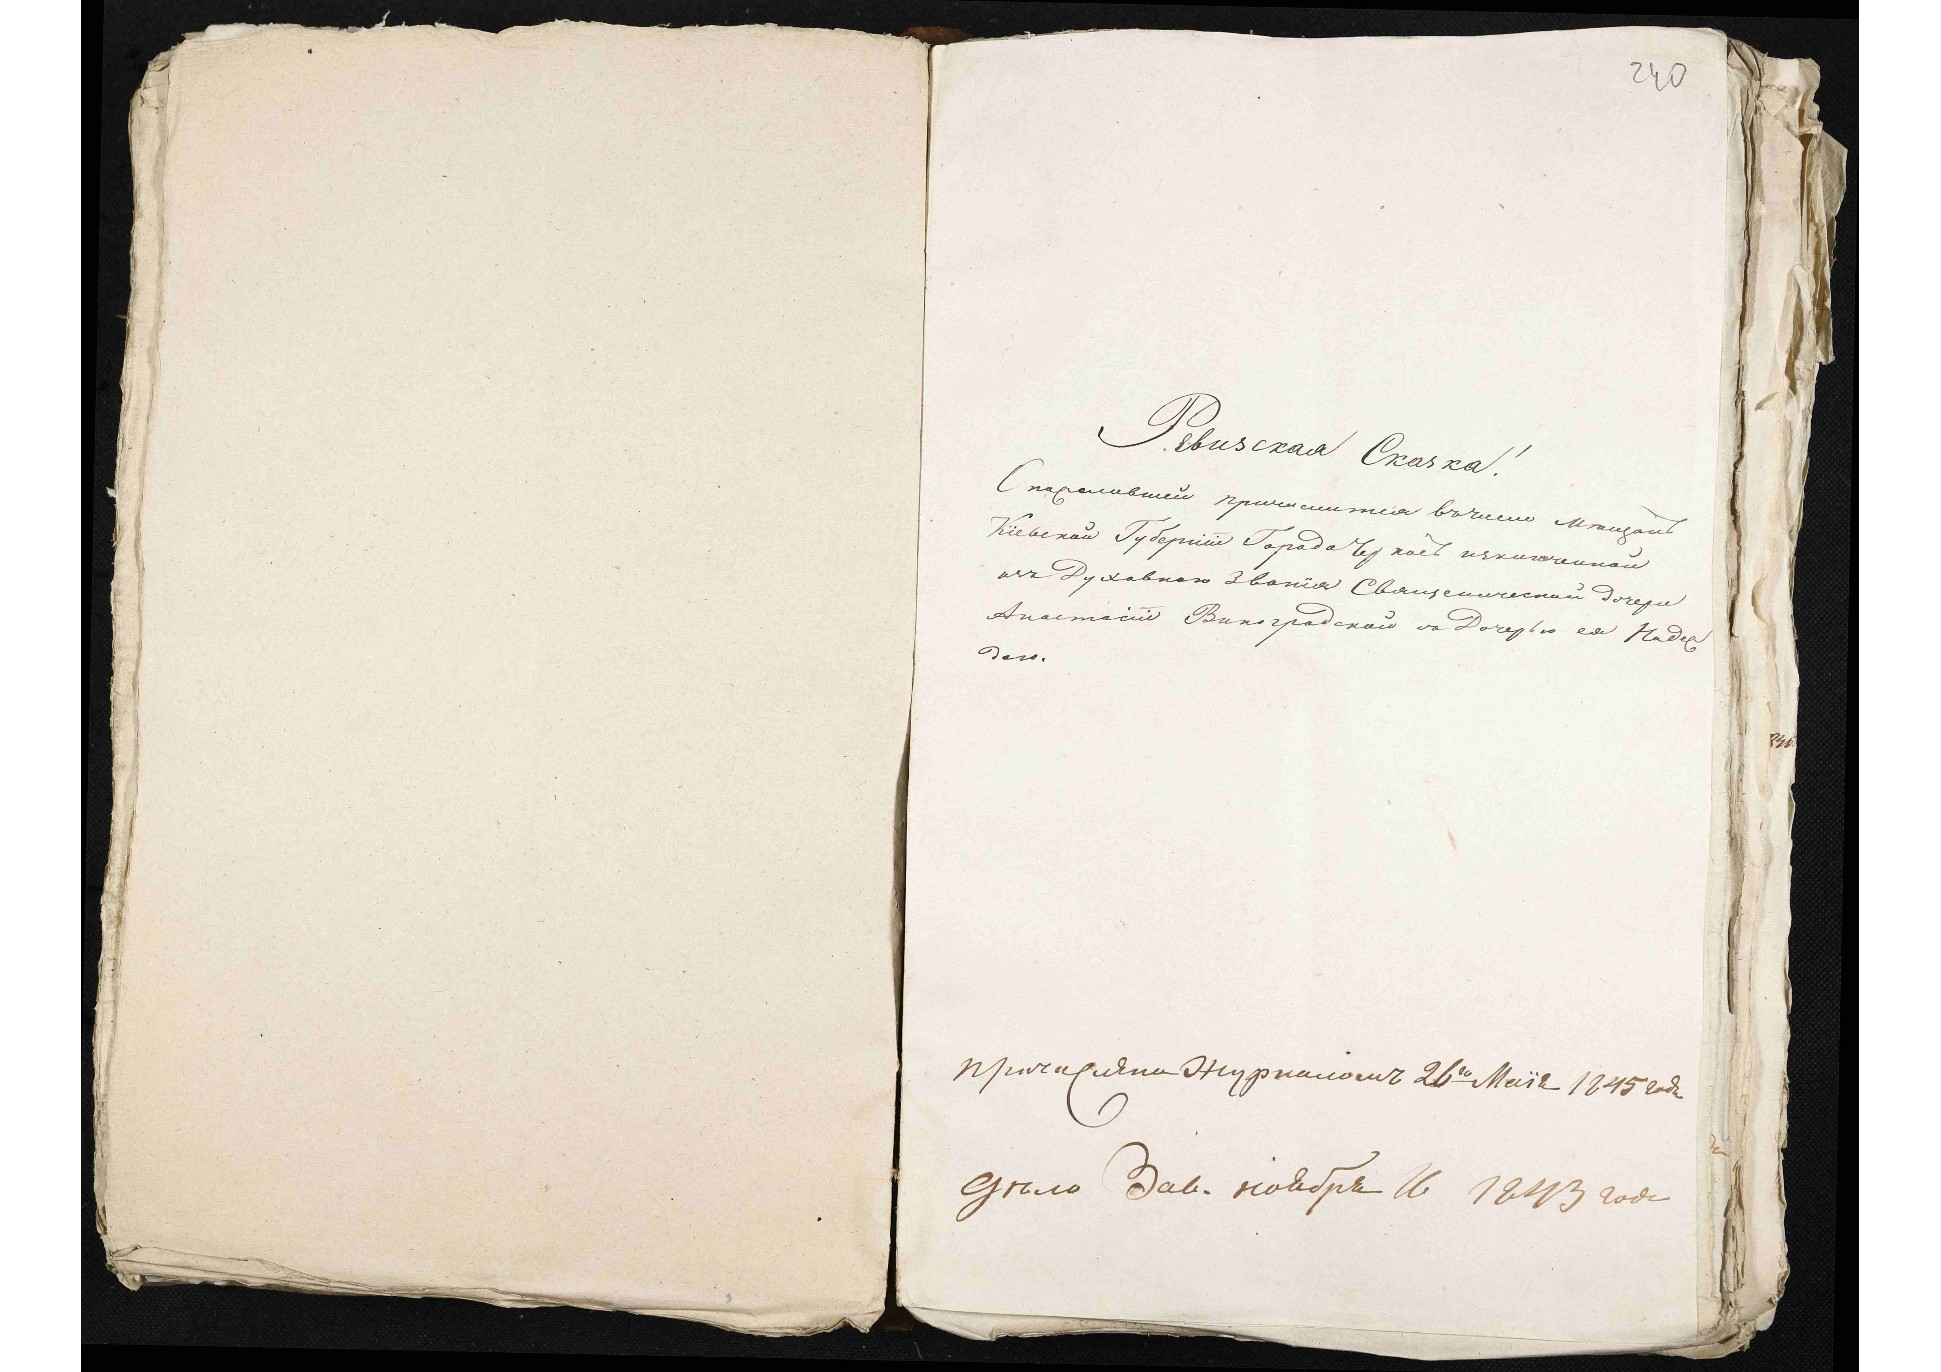 240
Ревизская Сказка!
О пожелавшей причислится въ число мѣщанъ
Кіевской Губерніи Города Черкасъ изключенной
изъ Духовного Званія Священической дочери
Анастасіи Виноградской со Дочерью ея Надеж
дою.
причислена Журналомъ 26го Маія 1845 года
дѣло Зав. ноября 16 1843 года